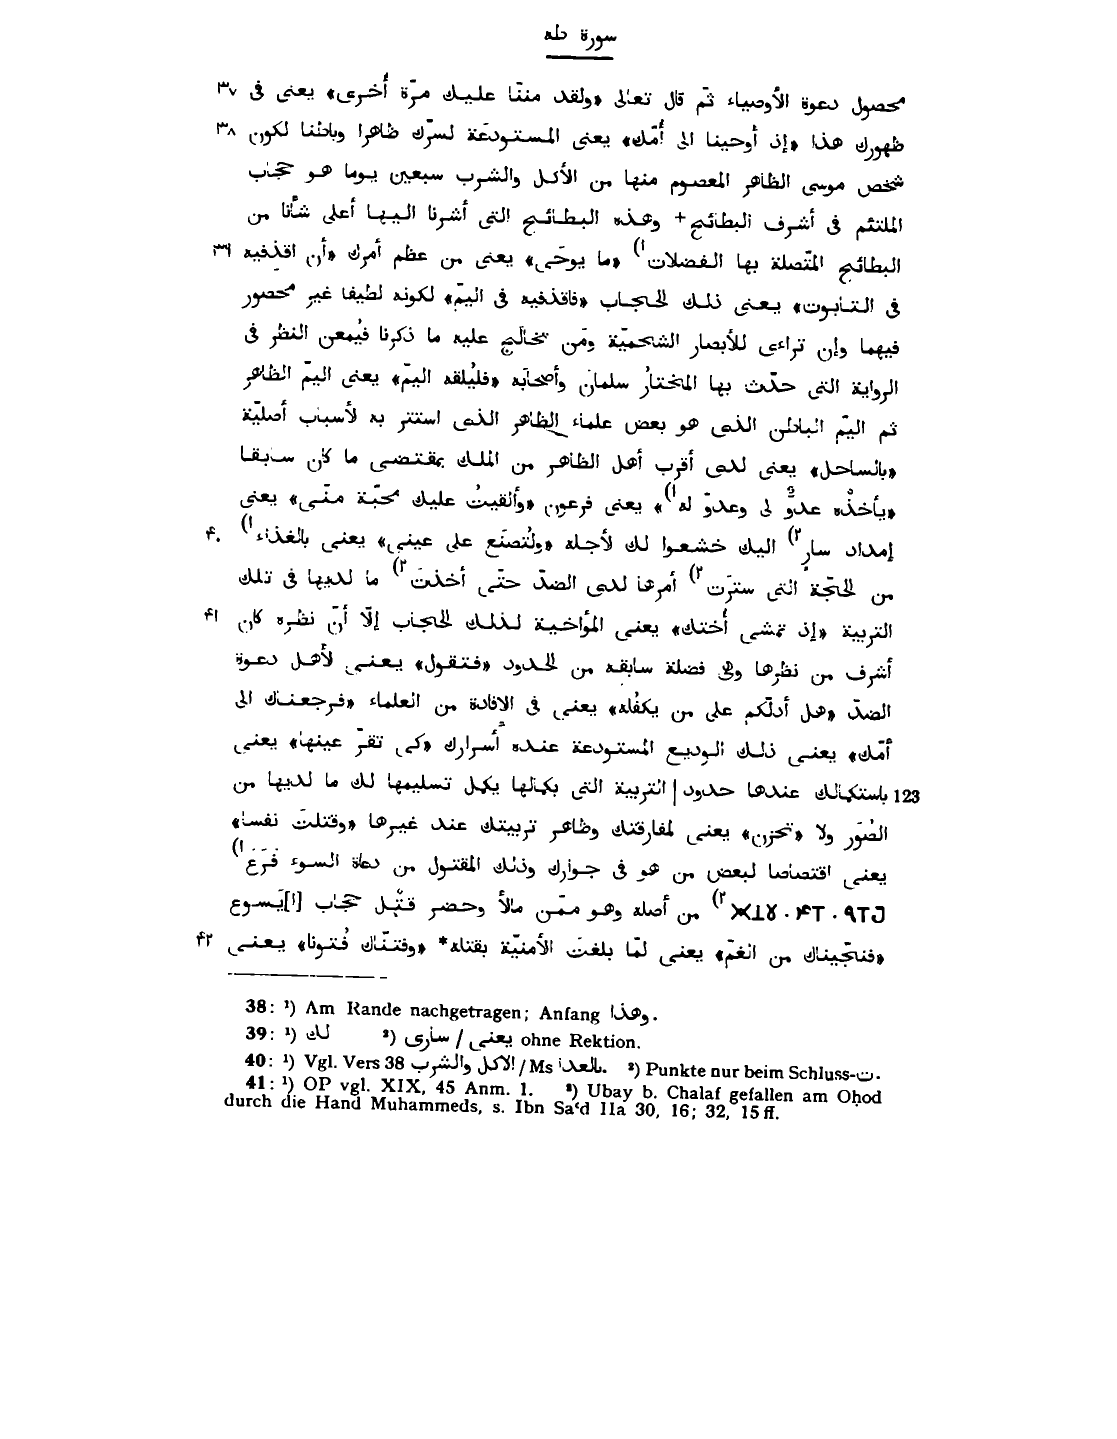 سورة طه
محصول دعوة الأوصياء ثمّ قال تعالى «ولقد مننّا عليك مرّة أُخرى» يعنى فى ٣٧
ظهورك هذا «إذ أوحينا الى أُمّك» يعنى المستودعَة لسرّك ظاهرا وباطنا لكون ٣٨
شخص موسى الظاهر المعصوم منها من الأكل والشرب سبعين يوما هو حجاب
الملتئم فى أشرف البطائح+ وهذه البطائح التى أشرنا اليها أعلى شأنا من
البطائح المتّصلة بها الفضلات١) «ما يوحَى» يعنى من عظم أمرك «أن اقذفيه ٣٩
فى التابوت» يعنى ذلك الحجاب «فاقذفيه فى اليمّ» لكونه لطيفا غير محصور
فيهما وإن تراءى للأبصار الشحميّة ومَن تخالج عليه ما ذكرنا فيُمعن النظر فى
الرواية التى حدّث بها المختارُ سلمانَ وأصحابَه «فليُلقه اليمّ» يعنى اليمّ الظاهر
ثم اليمّ الباطن الذى هو بعض علماء الظاهر الذى استتر به لأسباب أصليّة
«بالساحل» يعنى لدى أقرب أهل الظاهر من الملك بمقتضى ما كان سابقا
«يأخذْه عدوٌّ لى وعدوّ له١)» يعنى فرعون «وألقيتُ عليك محبّة منّى» يعنى
إمداد سارٍ٢) اليك خشعوا لك لأجله «ولتُصنَع على عينى» يعنى بالغذاء١) ۴٠
من الحجّة التى سترَت٢) أمرها لدى الضدّ حتّى أخذتَ٢) ما لديها فى تلك
التربية «إذ تمشى أُختك» يعنى المؤاخية لذلك الحجاب إلّا أنّ نظره كان ۴١
أشرف من نظرها وهى فضلة سابقه من الحدود «فتقول» يعنى لأهل دعوة
الضدّ «هل أدلّكم على من يكفُله» يعنى فى الافادة من العلماء «فرجعناك الى
أُمّك» يعنى ذلك الوديع المستودعة عنده أسرارك «كى تقرّ عينها» يعنى
123 باستكمالك عندها حدود | التربية التى بكمالها يكمل تسليمها لك ما لديها من
الصُوَر ولا «تحزن» يعنى لمفارقتك وظاهر تربيتك عند غيرها «وقتلتَ نفسا»
يعنى اقتصاصا لبعض من هو فى جوارك وذلك المقتول من دعاة السوء فَرَعَ١)
٢) من أصله وهو ممّن مالأ وحضر قتْل حجاب [ا]يَسوع
«فنجّيناك من الغمّ» يعنى لمّا بلغتَ الأمنيّة بقتله* «وفتنّاك فُتونا» يعنى ۴٢
38: ¹) Am Rande nachgetragen; Anfang وهذا.
39: ¹) لك ²) يعنى / سارى ohne Rektion.
40: ¹) Vgl. Vers 38 الاكل والشرب / Ms بالعدا. ²) Punkte nur beim Schluss-ت.
41: ¹) OP vgl. XIX, 45 Anm. 1. ²) Ubay b. Chalaf gefallen am Oḥod
durch die Hand Muhammeds, s. Ibn Sa‘d IIa 30, 16; 32, 15 ff.